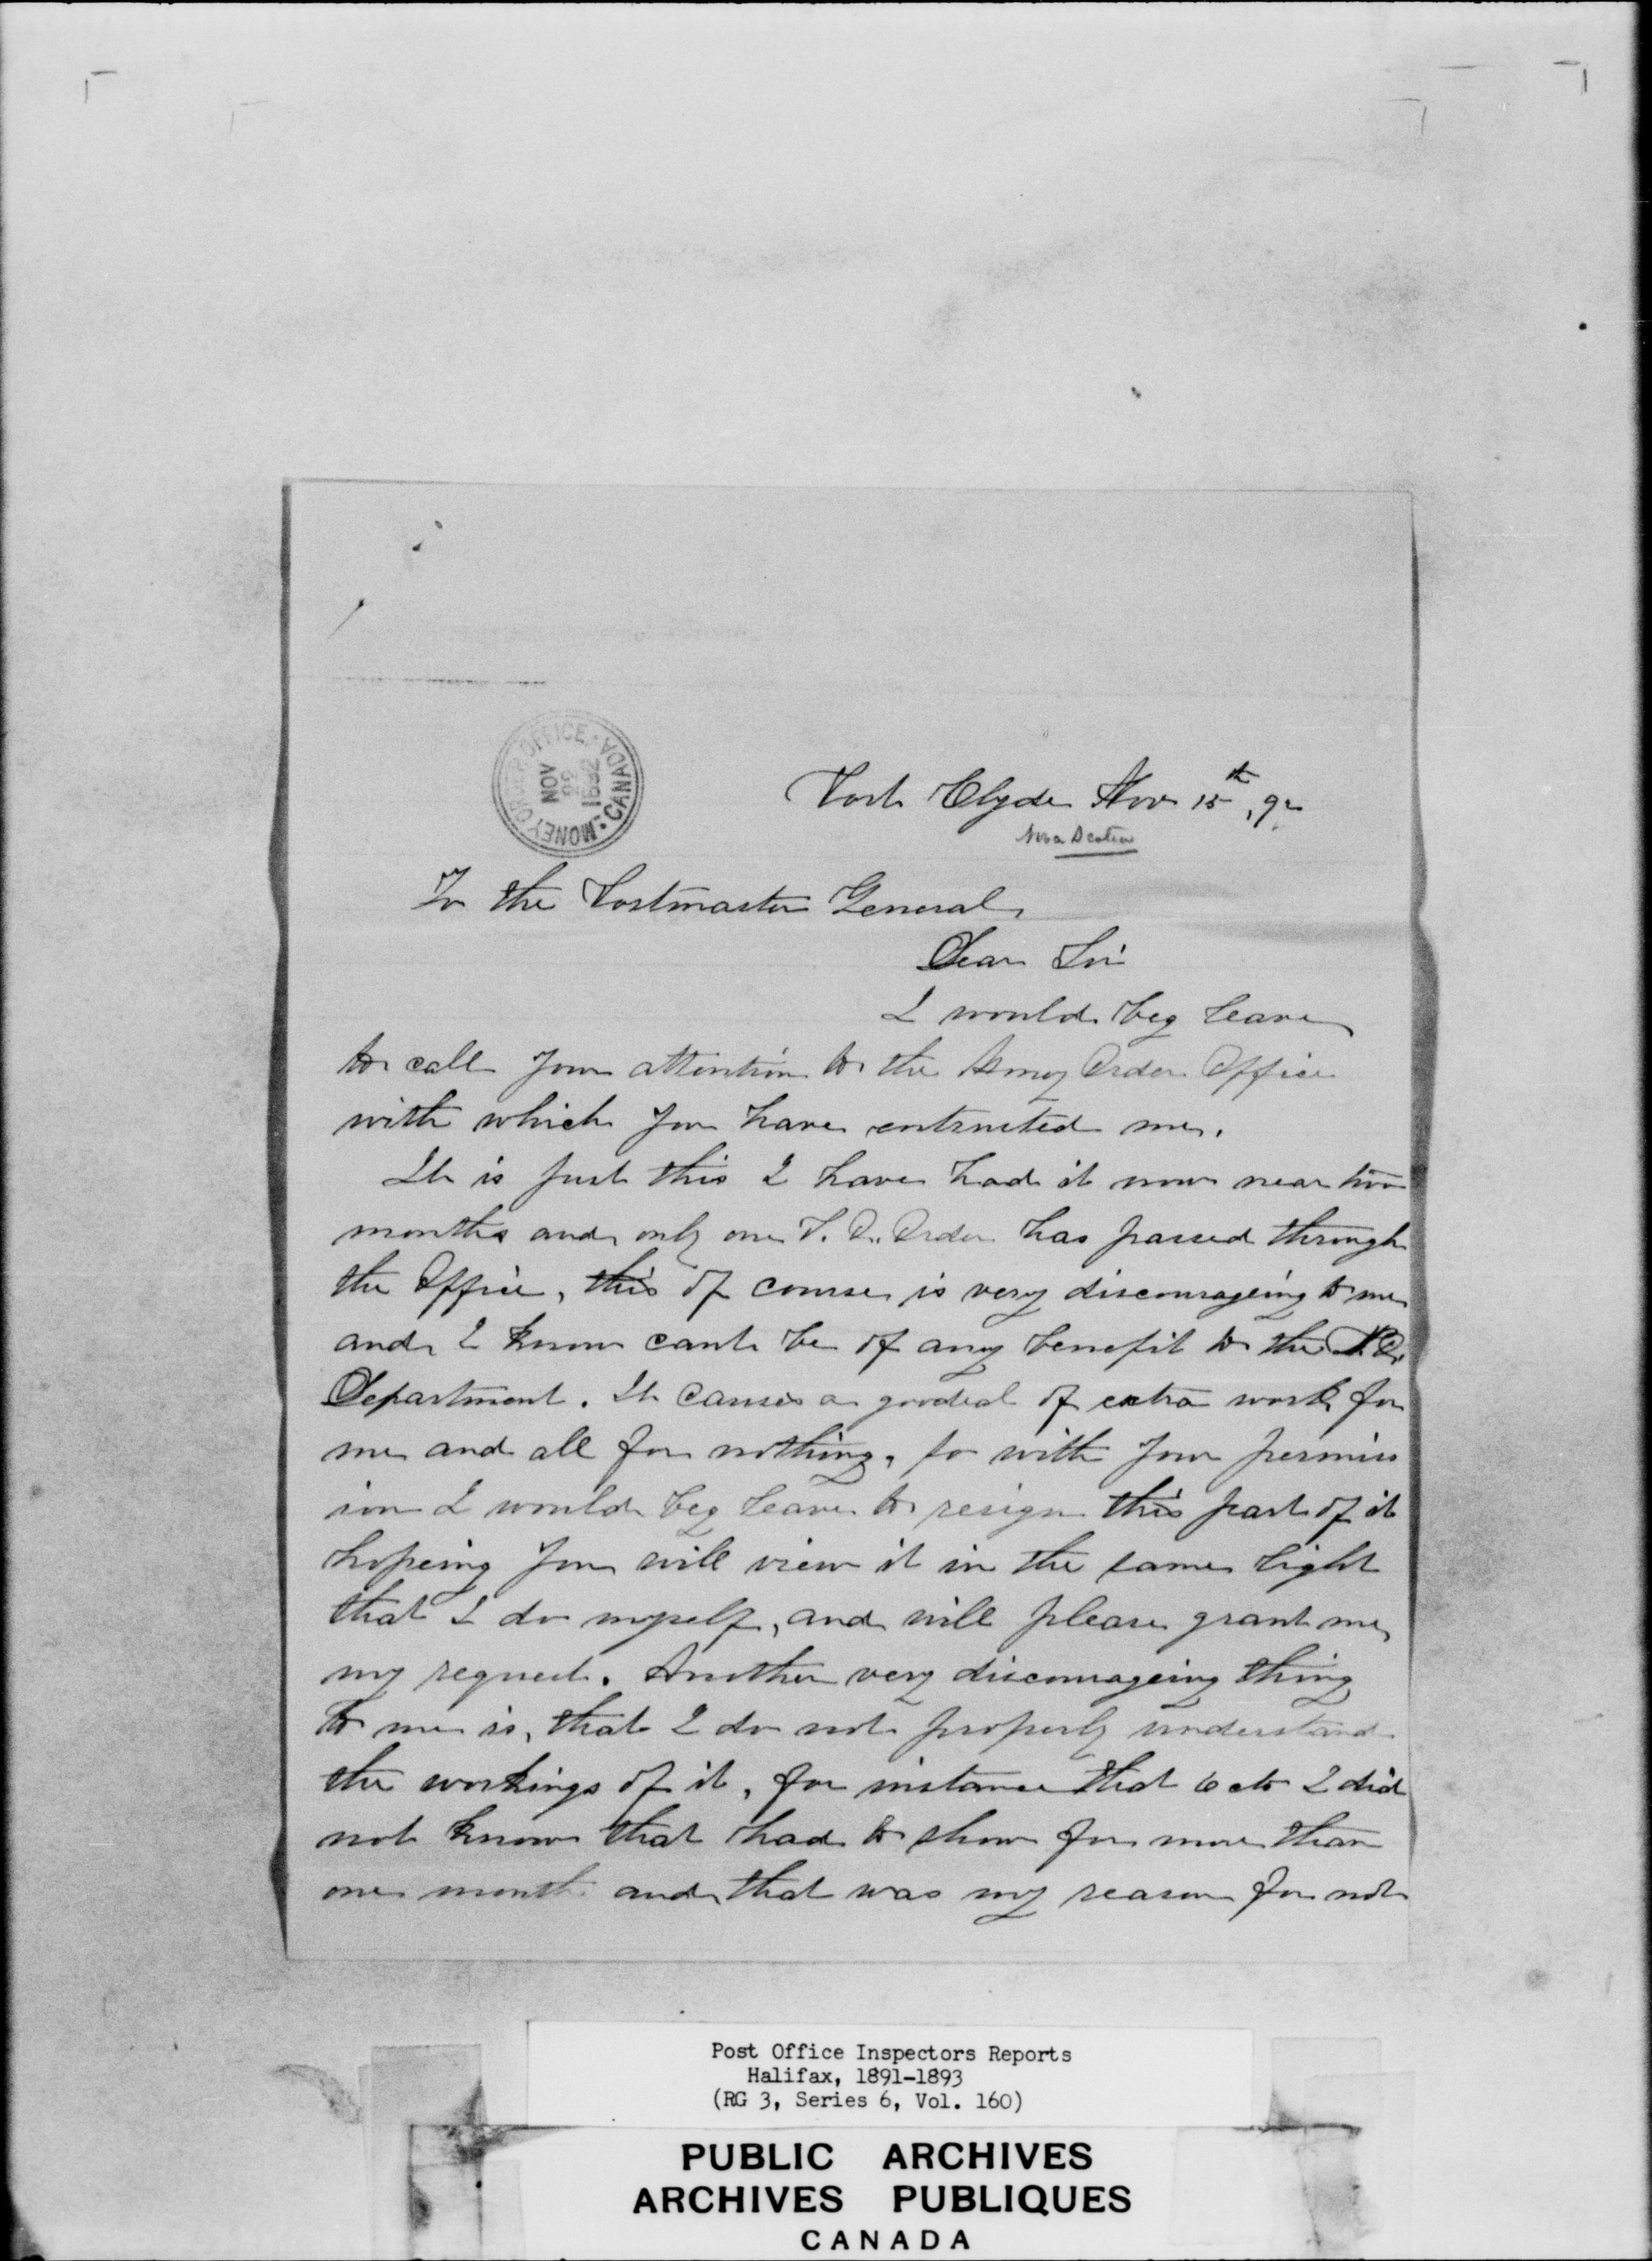 MONEY ORDER OFFICE · CANADA
NOV
22
1892
Port Clyde Nov 15th, 92
Nova Scotia
To the Postmaster General
Dear Sir
I would beg leave
to call your attention to the Money Order Office
with which you have entrusted me.
It is just this I have had it now near two
months and only one P. O. Order has passed through
the Office, this of course is very discourageing to me
and I know cant be of any benefit to the P.O.
Department. It causes a goodeal of extra work for
me and all for nothing, so with your permiss
ion I would beg leave to resign this part of it
hopeing you will view it in the same light
that I do myself, and will please grant me
my request. Another very discourageing thing
to me is, that I do not properly understand
the workings of it, for instance that 6 cts I did
not know that had to show for more than
one month and that was my reason for not
Post Office Inspectors Reports
Halifax, 1891-1893
(RG 3, Series 6, Vol. 160)
PUBLIC ARCHIVES
ARCHIVES PUBLIQUES
CANADA